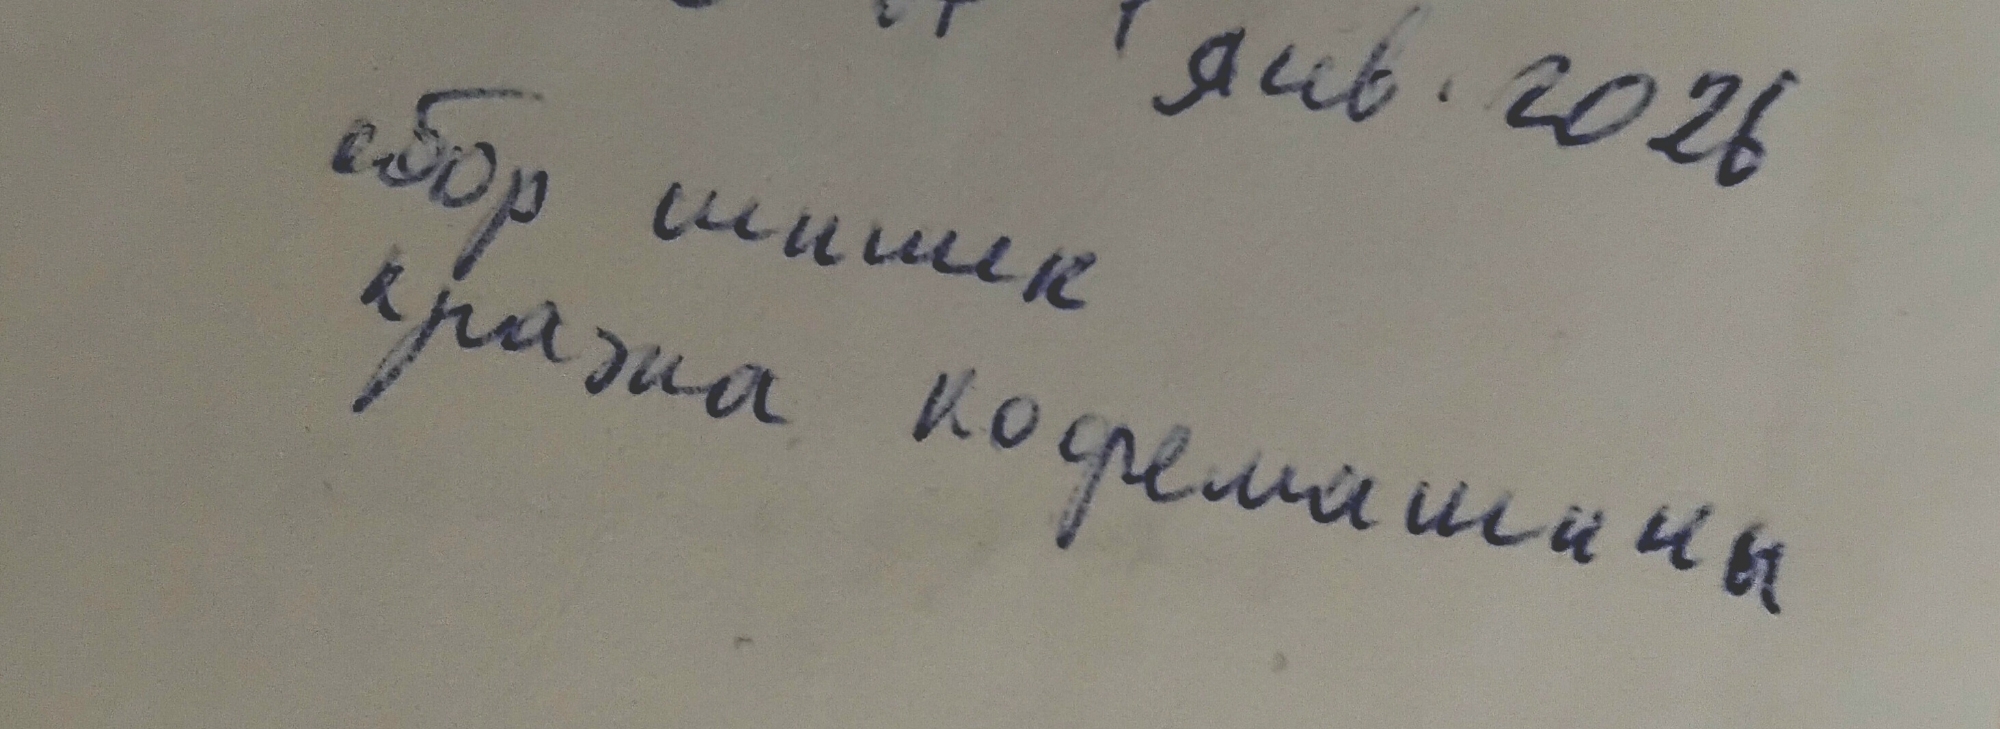 янв. 2026
сбор шишек
кража кофемашины